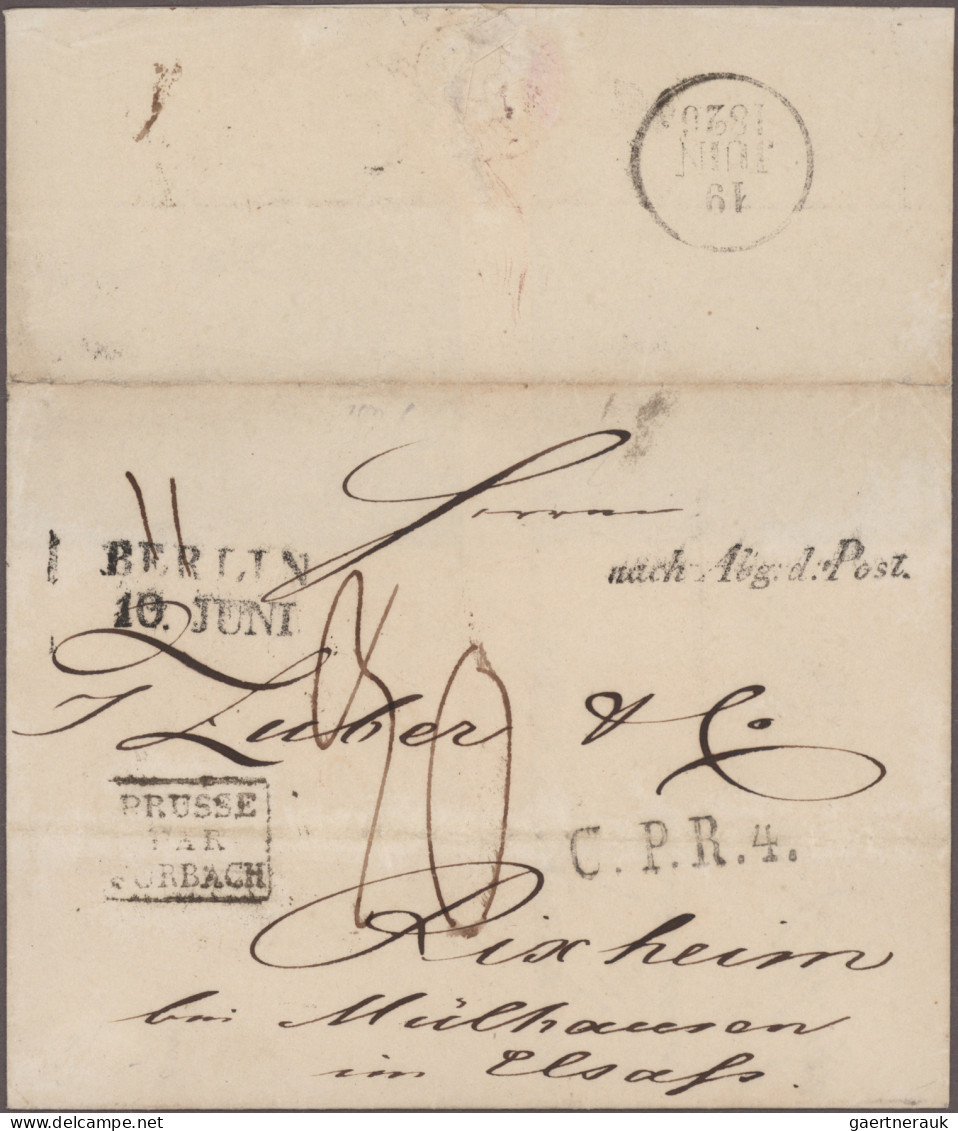 19
JUIN
1820
Herrn
BERLIN
10. JUNI
nach Abg: d: Post.
J Zuber & Co
30
PRUSSE
PAR
FORBACH
C.P.R.4.
Rixheim
bei Mülhausen
im Elsaß.
gaertnerauk